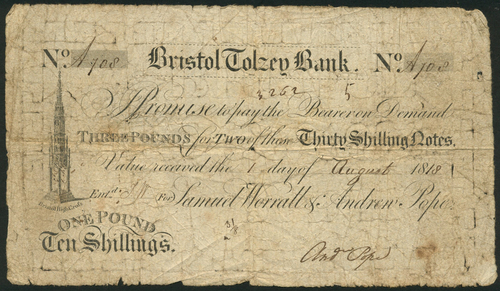 No. A708 Bristol Tolzey Bank. No. A708
3262 5
I Promise to pay the Bearer on Demand
THREE POUNDS for TWO of these Thirty Shilling Notes.
Value received the 1 day of August 1818
Entd. For Samuel Worrall & Andrew Pope
ONE POUND
Ten Shillings.
And Pope